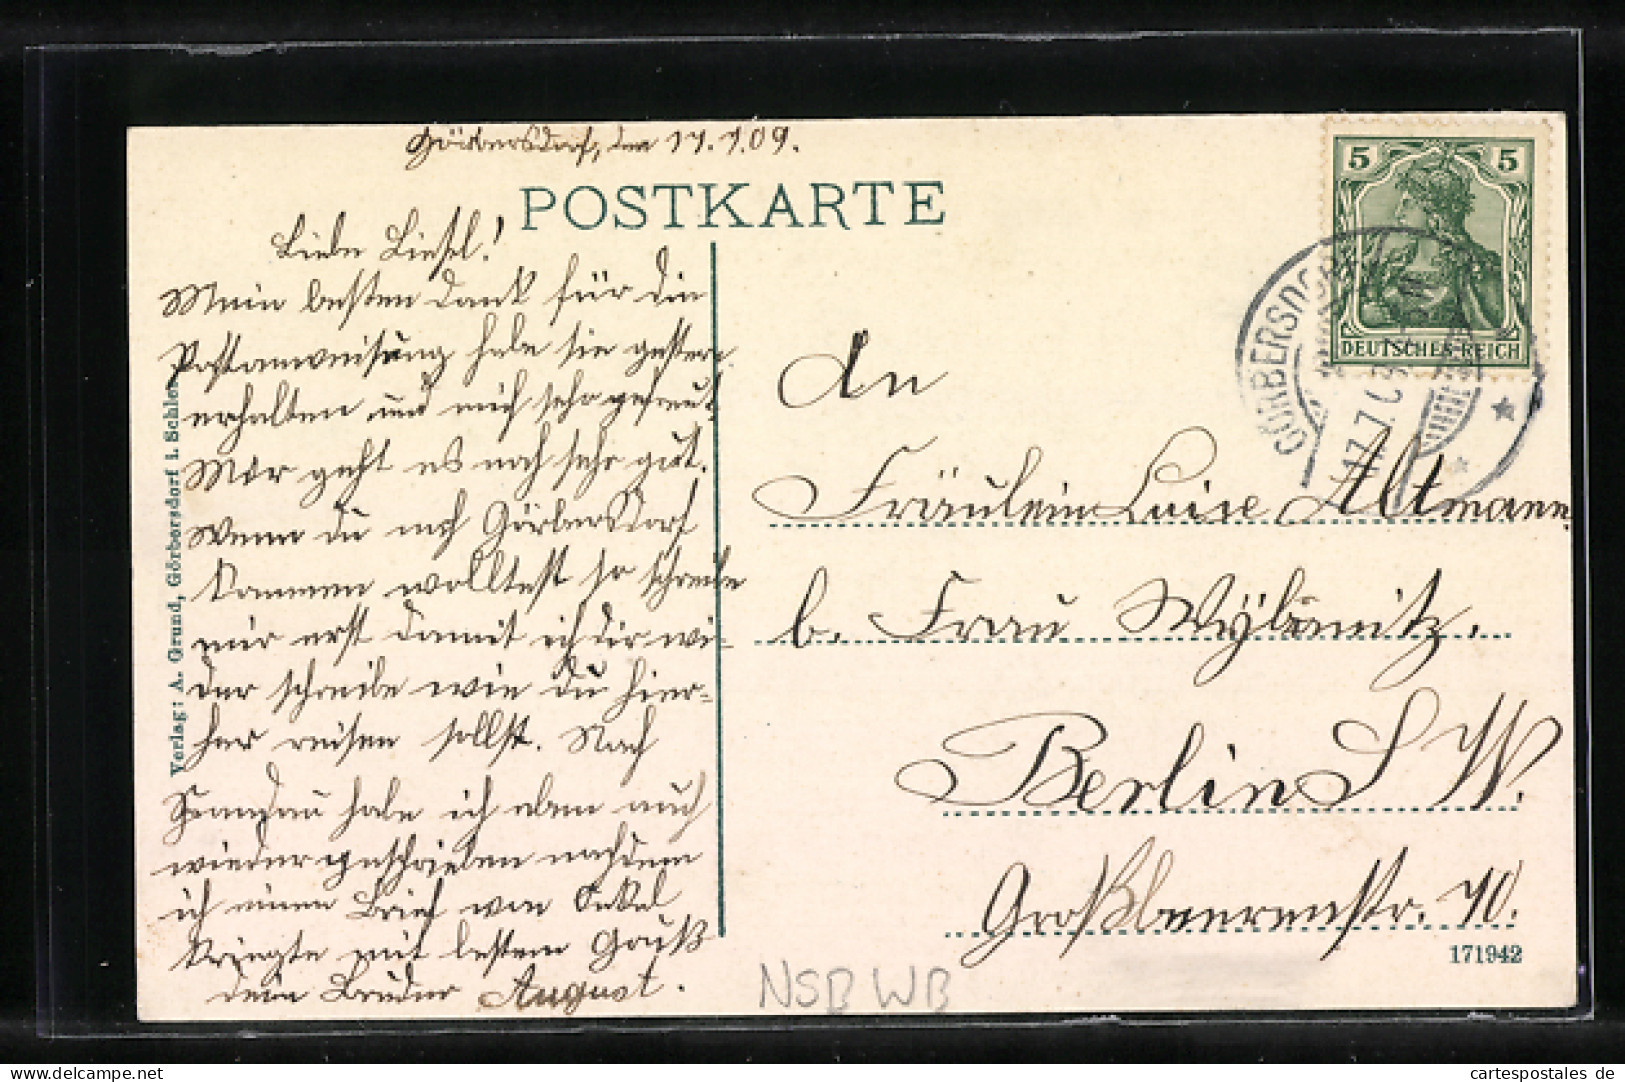 Görbersdorf, den 17.7.09.
POSTKARTE
Liebe Liesel!
Mein besten Dank für die
Postanweisung habe sie gestern
erhalten und mich sehr gefreut.
Mir geht es noch sehr gut.
Wenn du nach Görbersdorf
kommen wolltest so schreibe
mir erst damit ich dir wi-
der schreibe wie du hier-
her reisen sollst. Nach
habe ich eben auch
wieder geschrieben nachdem
ich einen Brief von Onkel
kriegte mit bestem Gruß
dein Bruder August.
Verlag: A. Grund, Görbersdorf i. Schles.
5 5
DEUTSCHES REICH
GÖRBERSDORF
17.7.09
An
Fräulein Luise Altmann
b. Frau
Berlin S W.
Großbeerenstr. 70.
171942
NSB WB
cartespostales.de
cartespostales de